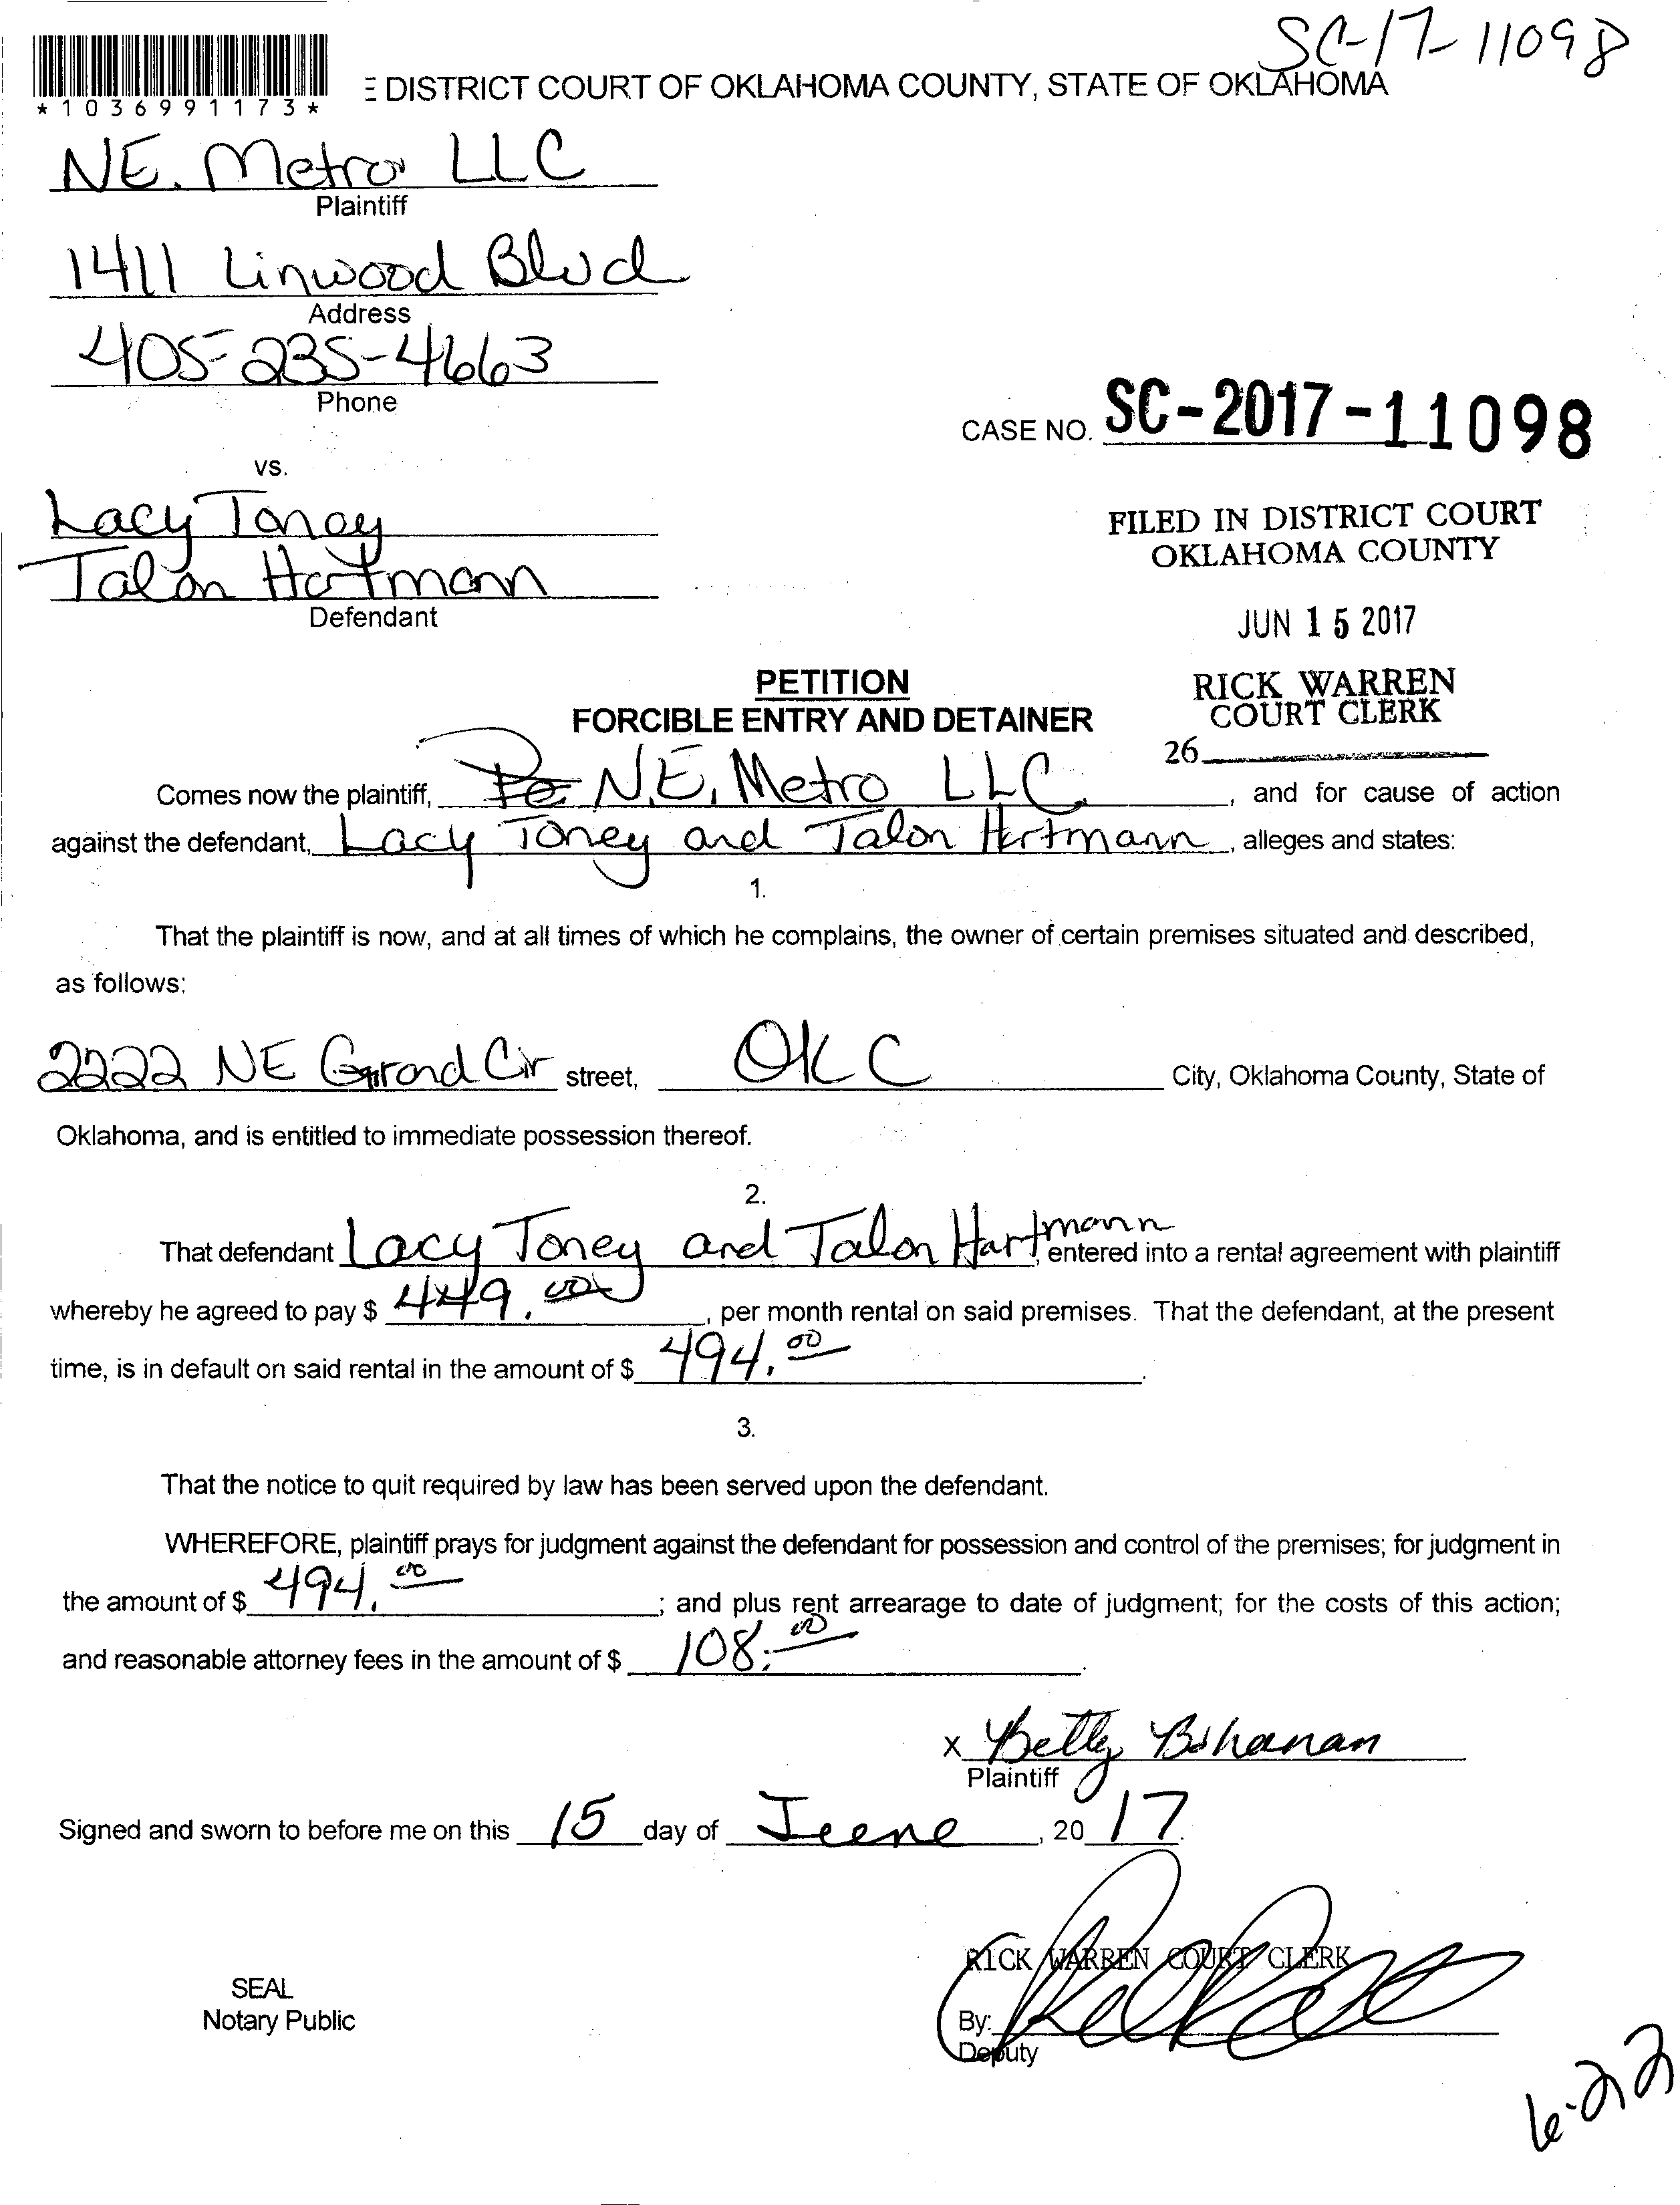 SC-17-11098
*1036991173*
E DISTRICT COURT OF OKLAHOMA COUNTY, STATE OF OKLAHOMA
NE. Metro LLC
Plaintiff
1411 Linwood Blvd
Address
405-235-4663
Phone
CASE NO. SC-2017-11098
vs.
Lacy Toney
Talon Hartmann
Defendant
FILED IN DISTRICT COURT
OKLAHOMA COUNTY
JUN 15 2017
RICK WARREN
COURT CLERK
26
PETITION
FORCIBLE ENTRY AND DETAINER
Comes now the plaintiff, N.E. Metro LLC, and for cause of action
against the defendant, Lacy Toney and Talon Hartmann, alleges and states:
1.
That the plaintiff is now, and at all times of which he complains, the owner of certain premises situated and described,
as follows:
2222 NE Grand Cir street, OKC City, Oklahoma County, State of
Oklahoma, and is entitled to immediate possession thereof.
2.
That defendant Lacy Toney and Talon Hartmann, entered into a rental agreement with plaintiff
whereby he agreed to pay $ 449.00, per month rental on said premises. That the defendant, at the present
time, is in default on said rental in the amount of $ 494.00.
3.
That the notice to quit required by law has been served upon the defendant.
WHEREFORE, plaintiff prays for judgment against the defendant for possession and control of the premises; for judgment in
the amount of $ 494.00; and plus rent arrearage to date of judgment; for the costs of this action;
and reasonable attorney fees in the amount of $ 108.00.
x Betty Bohanan
Plaintiff
Signed and sworn to before me on this 15 day of June, 2017.
RICK WARREN COURT CLERK
SEAL
Notary Public
By:
Deputy
6-22